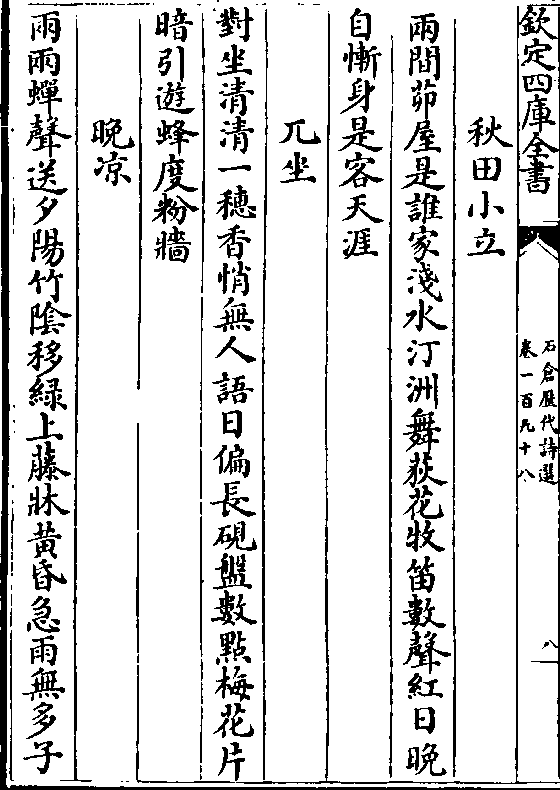 欽定四庫全書
石倉歴代詩選
卷一百九十八
八
秋田小立
兩間茆屋是誰家淺水汀洲舞荻花牧笛數聲紅日晚
自慚身是客天涯
兀坐
對坐清清一穗香悄無人語日偏長硯盤數點梅花片
暗引遊蜂度粉牆
晚凉
雨雨蟬聲送夕陽竹陰移緑上藤牀黄昏急雨無多子